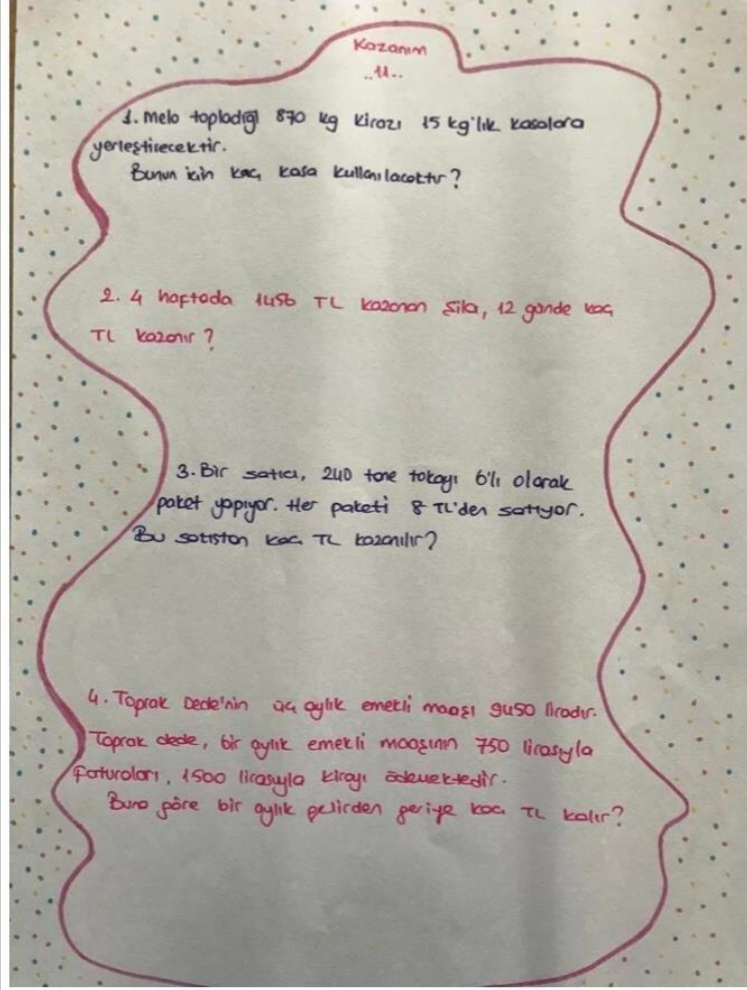 Kazanım
..11..
1. Melo topladığı 870 kg kirazı 15 kg'lık kasalara
yerleştirecektir.
Bunun için kaç kasa kullanılacaktır?
2. 4 haftada 1456 TL kazanan Şila, 12 günde kaç
TL kazanır?
3. Bir satıcı, 240 tane tokayı 6'lı olarak
paket yapıyor. Her paketi 8 TL'den satıyor.
Bu satıştan kaç TL kazanılır?
4. Toprak Dede'nin üç aylık emekli maaşı 9450 liradır.
Toprak dede, bir aylık emekli maaşının 750 lirasıyla
faturaları, 1500 lirasıyla kirayı ödemektedir.
Buna göre bir aylık gelirden geriye kaç TL kalır?